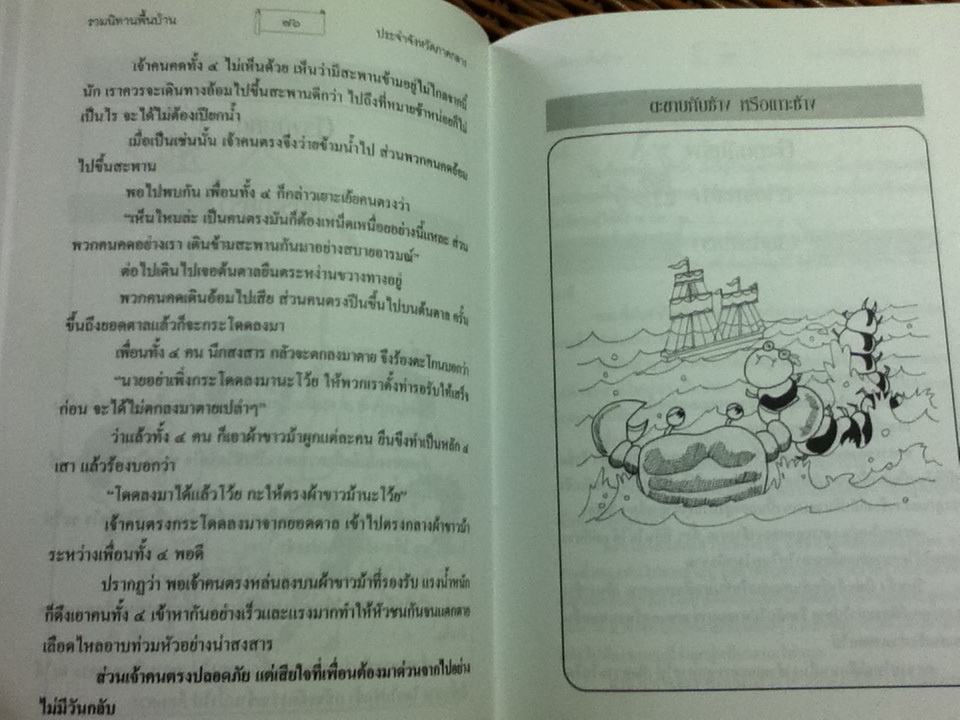 รวมนิทานพื้นบ้าน
๗๖
ประจำจังหวัดภาคกลาง
เจ้าคนคดทั้ง ๔ ไม่เห็นด้วย เห็นว่ามีสะพานข้ามอยู่ไม่ไกลจากนี้
นัก เราควรจะเดินทางอ้อมไปขึ้นสะพานดีกว่า ไปถึงที่หมายช้าหน่อยก็ไม่
เป็นไร จะได้ไม่ต้องเปียกน้ำ
เมื่อเป็นเช่นนั้น เจ้าคนตรงจึงว่ายข้ามน้ำไป ส่วนพวกคนคดอ้อม
ไปขึ้นสะพาน
พอไปพบกัน เพื่อนทั้ง ๔ ก็กล่าวเยาะเย้ยคนตรงว่า
“เห็นไหมล่ะ เป็นคนตรงมันก็ต้องเหน็ดเหนื่อยอย่างนี้แหละ ส่วน
พวกคนคดอย่างเรา เดินข้ามสะพานกันมาอย่างสบายอารมณ์”
ต่อไปเดินไปเจอต้นตาลยืนตระหง่านขวางทางอยู่
พวกคนคดเดินอ้อมไปเสีย ส่วนคนตรงปีนขึ้นไปบนต้นตาล ครั้น
ขึ้นถึงยอดตาลแล้วก็จะกระโดดลงมา
เพื่อนทั้ง ๔ คน นึกสงสาร กลัวจะตกลงมาตาย จึงร้องตะโกนบอกว่า
“นายอย่าเพิ่งกระโดดลงมานะโว้ย ให้พวกเราตั้งท่ารอรับให้เสร็จ
ก่อน จะได้ไม่ตกลงมาตายเปล่าๆ”
ว่าแล้วทั้ง ๔ คน ก็เอาผ้าขาวม้าผูกแต่ละคน ยืนขึงทำเป็นหลัก ๔
เสา แล้วร้องบอกว่า
“โดดลงมาได้แล้วโว้ย กะให้ตรงผ้าขาวม้านะโว้ย”
เจ้าคนตรงกระโดดลงมาจากยอดตาล เข้าไปตรงกลางผ้าขาวม้า
ระหว่างเพื่อนทั้ง ๔ พอดี
ปรากฏว่า พอเจ้าคนตรงหล่นลงบนผ้าขาวม้าที่รองรับ แรงน้ำหนัก
ก็ดึงเอาคนทั้ง ๔ เข้าหากันอย่างเร็วและแรงมากทำให้หัวชนกันจนแตกตาย
เลือดไหลอาบท่วมหัวอย่างน่าสงสาร
ส่วนเจ้าคนตรงปลอดภัย แต่เสียใจที่เพื่อนต้องมาด่วนจากไปอย่าง
ไม่มีวันกลับ
ตะขาบกับช้าง หรือเกาะช้าง